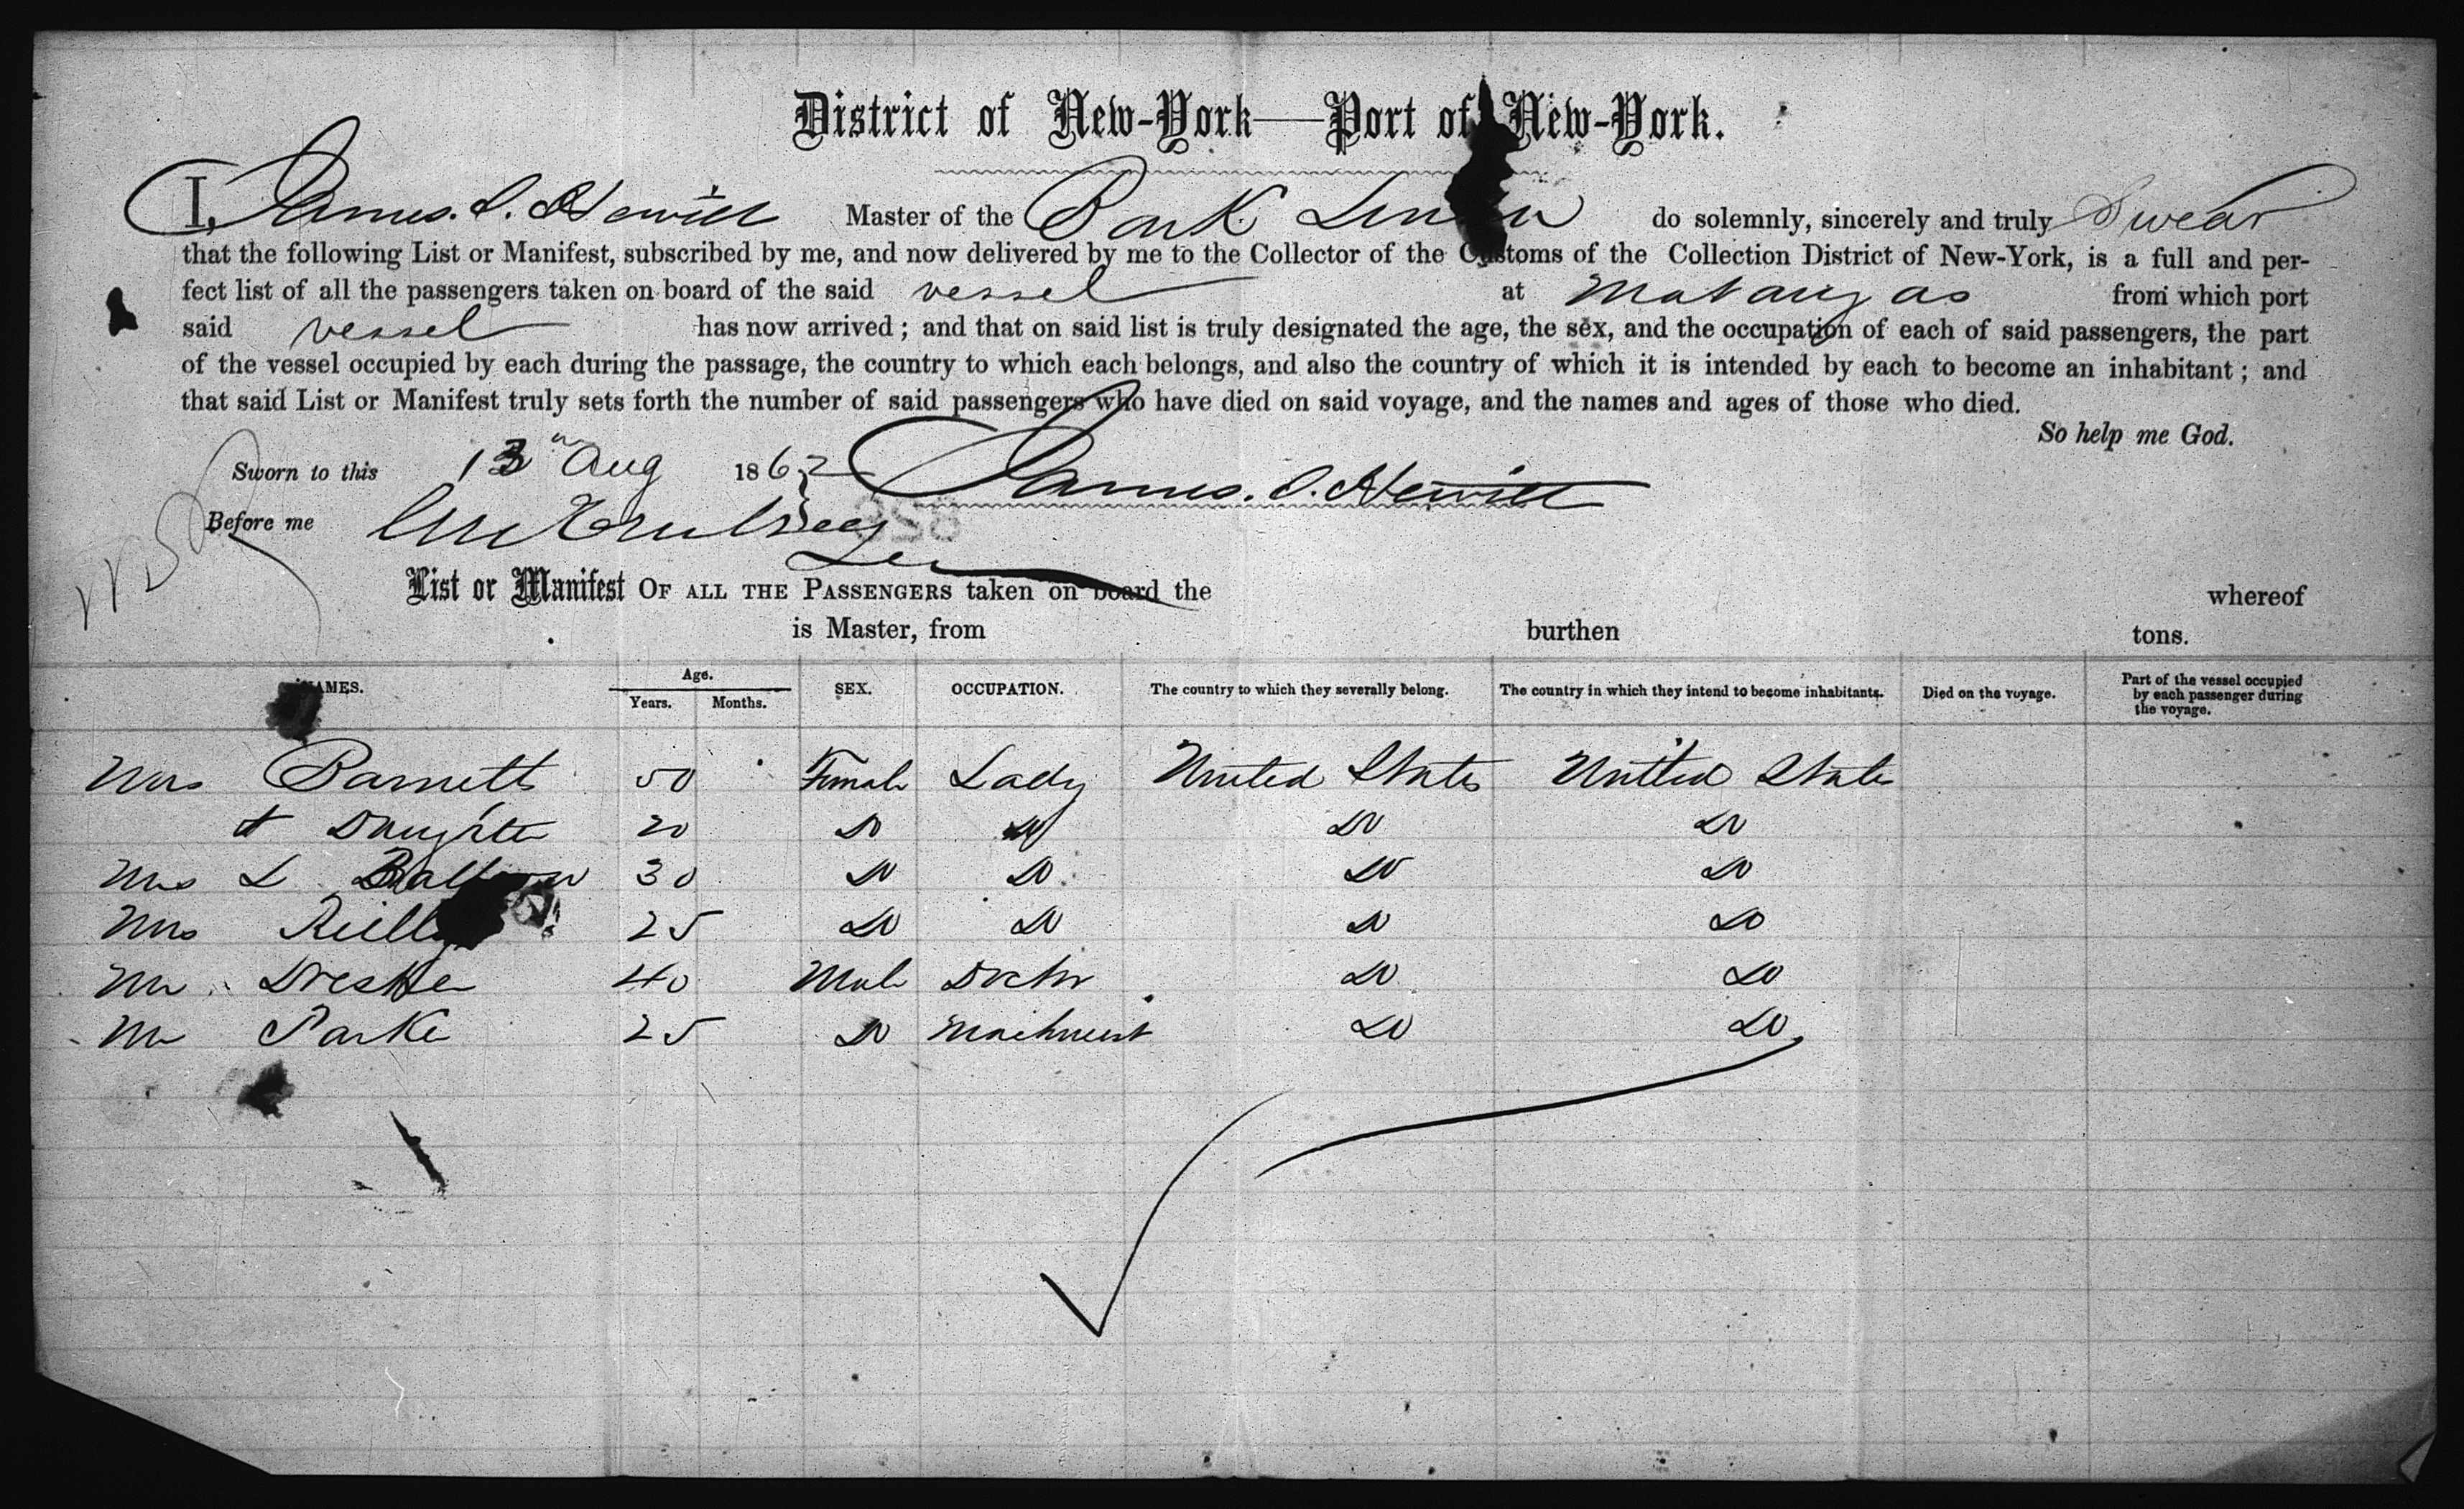 District of New-York—Port of New-York.
I, James. S. Hewitt Master of the Bark do solemnly, sincerely and truly Swear
that the following List or Manifest, subscribed by me, and now delivered by me to the Collector of the Customs of the Collection District of New-York, is a full and per-
fect list of all the passengers taken on board of the said vessel at Matanzas from which port
said vessel has now arrived; and that on said list is truly designated the age, the sex, and the occupation of each of said passengers, the part
of the vessel occupied by each during the passage, the country to which each belongs, and also the country of which it is intended by each to become an inhabitant; and
that said List or Manifest truly sets forth the number of said passengers who have died on said voyage, and the names and ages of those who died.
So help me God.
Sworn to this 13 Aug 1862 James. S. Hewitt
Before me
List or Manifest OF ALL THE PASSENGERS taken on board the whereof
is Master, from burthen tons.
NAMES. Age. Years. Months. SEX. OCCUPATION. The country to which they severally belong. The country in which they intend to become inhabitants. Died on the voyage. Part of the vessel occupied by each passenger during the voyage.
Mrs Barnett 50 Female Lady United States United States
& Daughter 20 Do Do Do Do
Mrs L 30 Do Do Do Do
Mrs Reilly 25 Do Do Do Do
Mr 40 Male Doctor Do Do
Mr Parke 25 Do Machinist Do Do